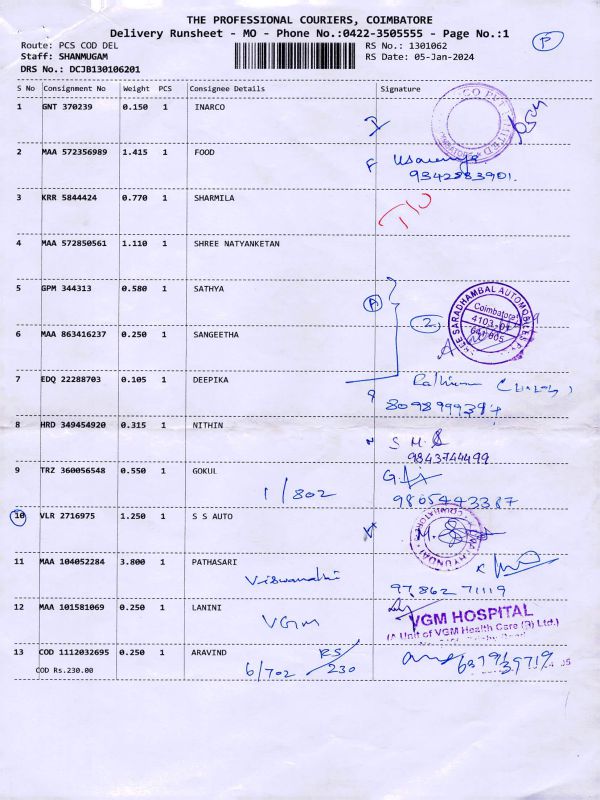 THE PROFESSIONAL COURIERS, COIMBATORE
Delivery Runsheet - MO - Phone No.:0422-3505555 - Page No.:1
Route: PCS COD DEL RS No.: 1301062 P
Staff: SHANMUGAM RS Date: 05-Jan-2024
DRS No.: DCJB130106201
S No Consignment No Weight PCS Consignee Details Signature
1 GNT 370239 0.150 1 INARCO
2 MAA 572356989 1.415 1 FOOD
9342883901.
3 KRR 5844424 0.770 1 SHARMILA
4 MAA 572850561 1.110 1 SHREE NATYANKETAN
5 GPM 344313 0.580 1 SATHYA
SARADHAMBAL AUTOMOBILES
Coimbatore
641 005
2
6 MAA 863416237 0.250 1 SANGEETHA
7 EDQ 22288703 0.105 1 DEEPIKA
8 HRD 349454920 0.315 1 NITHIN
9843744499
9 TRZ 360056548 0.550 1 GOKUL
1/802
9805443387
10 VLR 2716975 1.250 1 S S AUTO
11 MAA 104052284 3.800 1 PATHASARI
97862 71119
12 MAA 101581069 0.250 1 LANINI
VGM
VGM HOSPITAL
(A Unit of VGM Health Care (P) Ltd.)
13 COD 1112032695 0.250 1 ARAVIND
COD Rs.230.00
6/702
RS
230